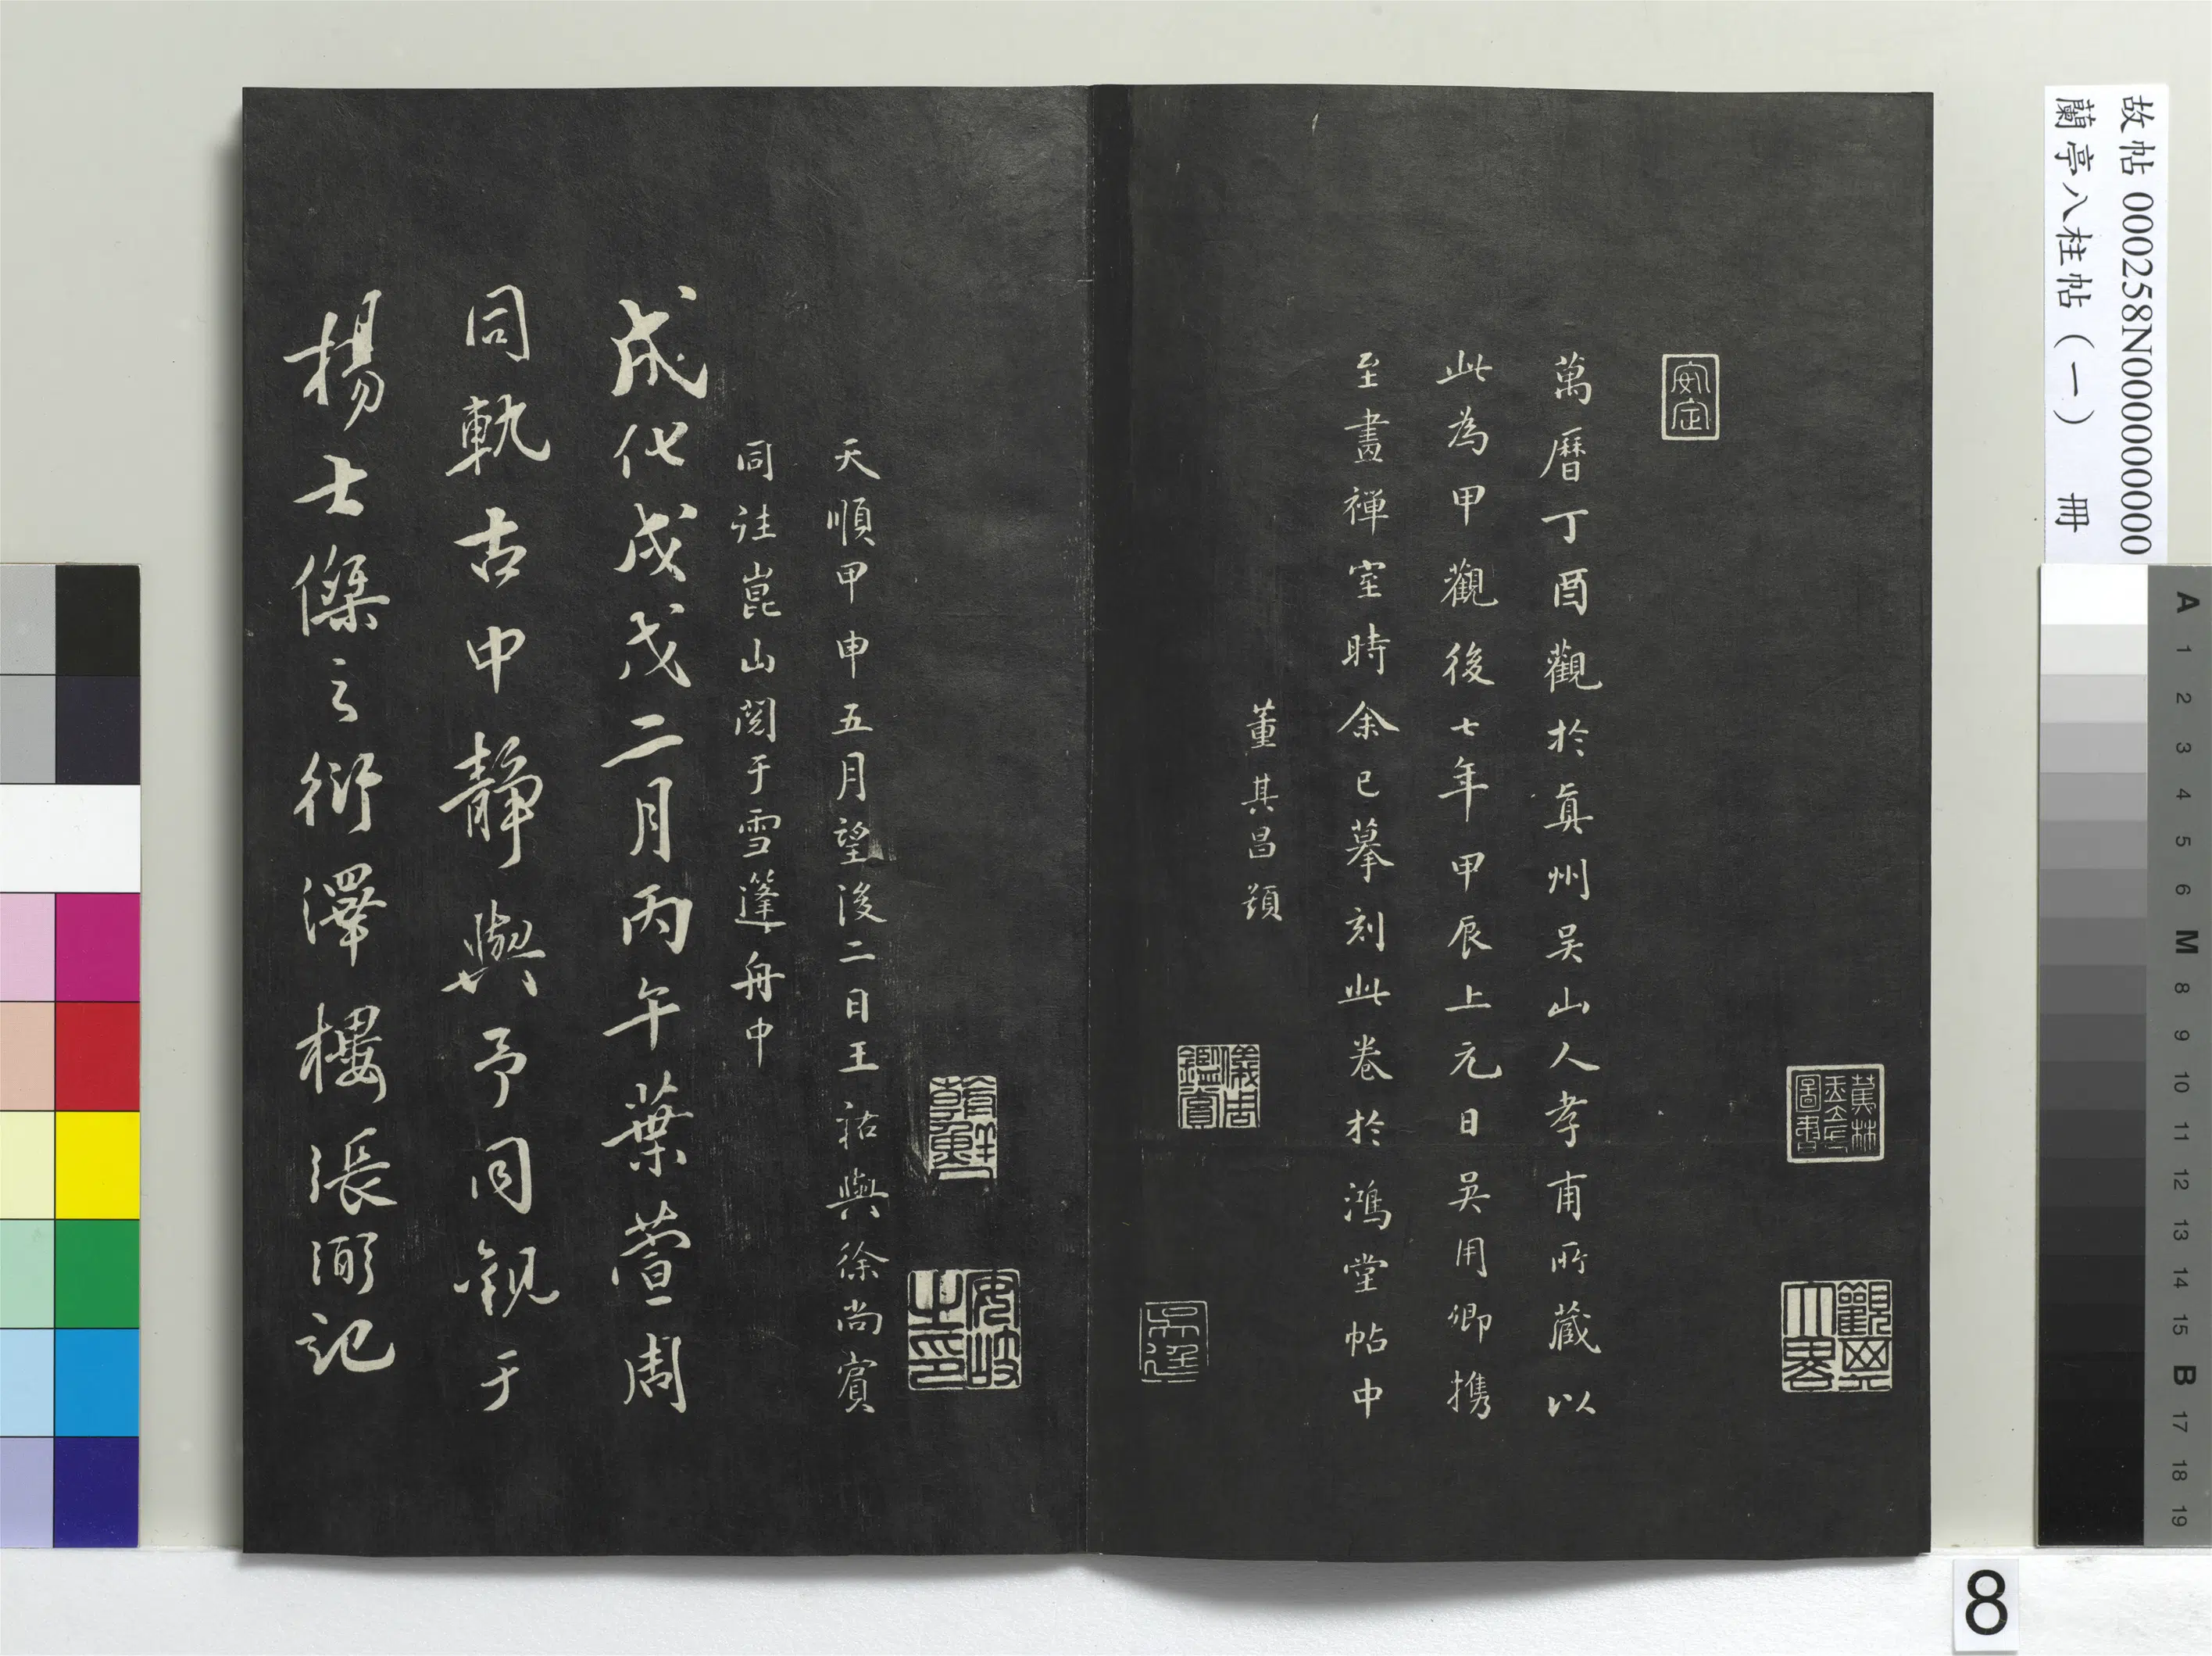 故帖 000258N000000000
蘭亭八柱帖（一） 冊
安定
萬曆丁酉觀於真州吴山人孝甫所藏以
此為甲觀後七年甲辰上元日吴用卿携
至畫禅室時余已摹刻此卷於鴻堂帖中
董其昌題
蕉林玉立氏圖書
觀其大略
儀周鑑賞
吴廷
安岐之印
天順甲申五月望後二日王祜與徐尚賓
同注崑山閱于雪篷舟中
成化戊戌二月丙午葉萱周
同軌古中靜與予同觀于
楊士傑之衍澤樓張弼記
8
A 1 2 3 4 5 6 M 8 9 10 11 12 13 14 15 B 17 18 19